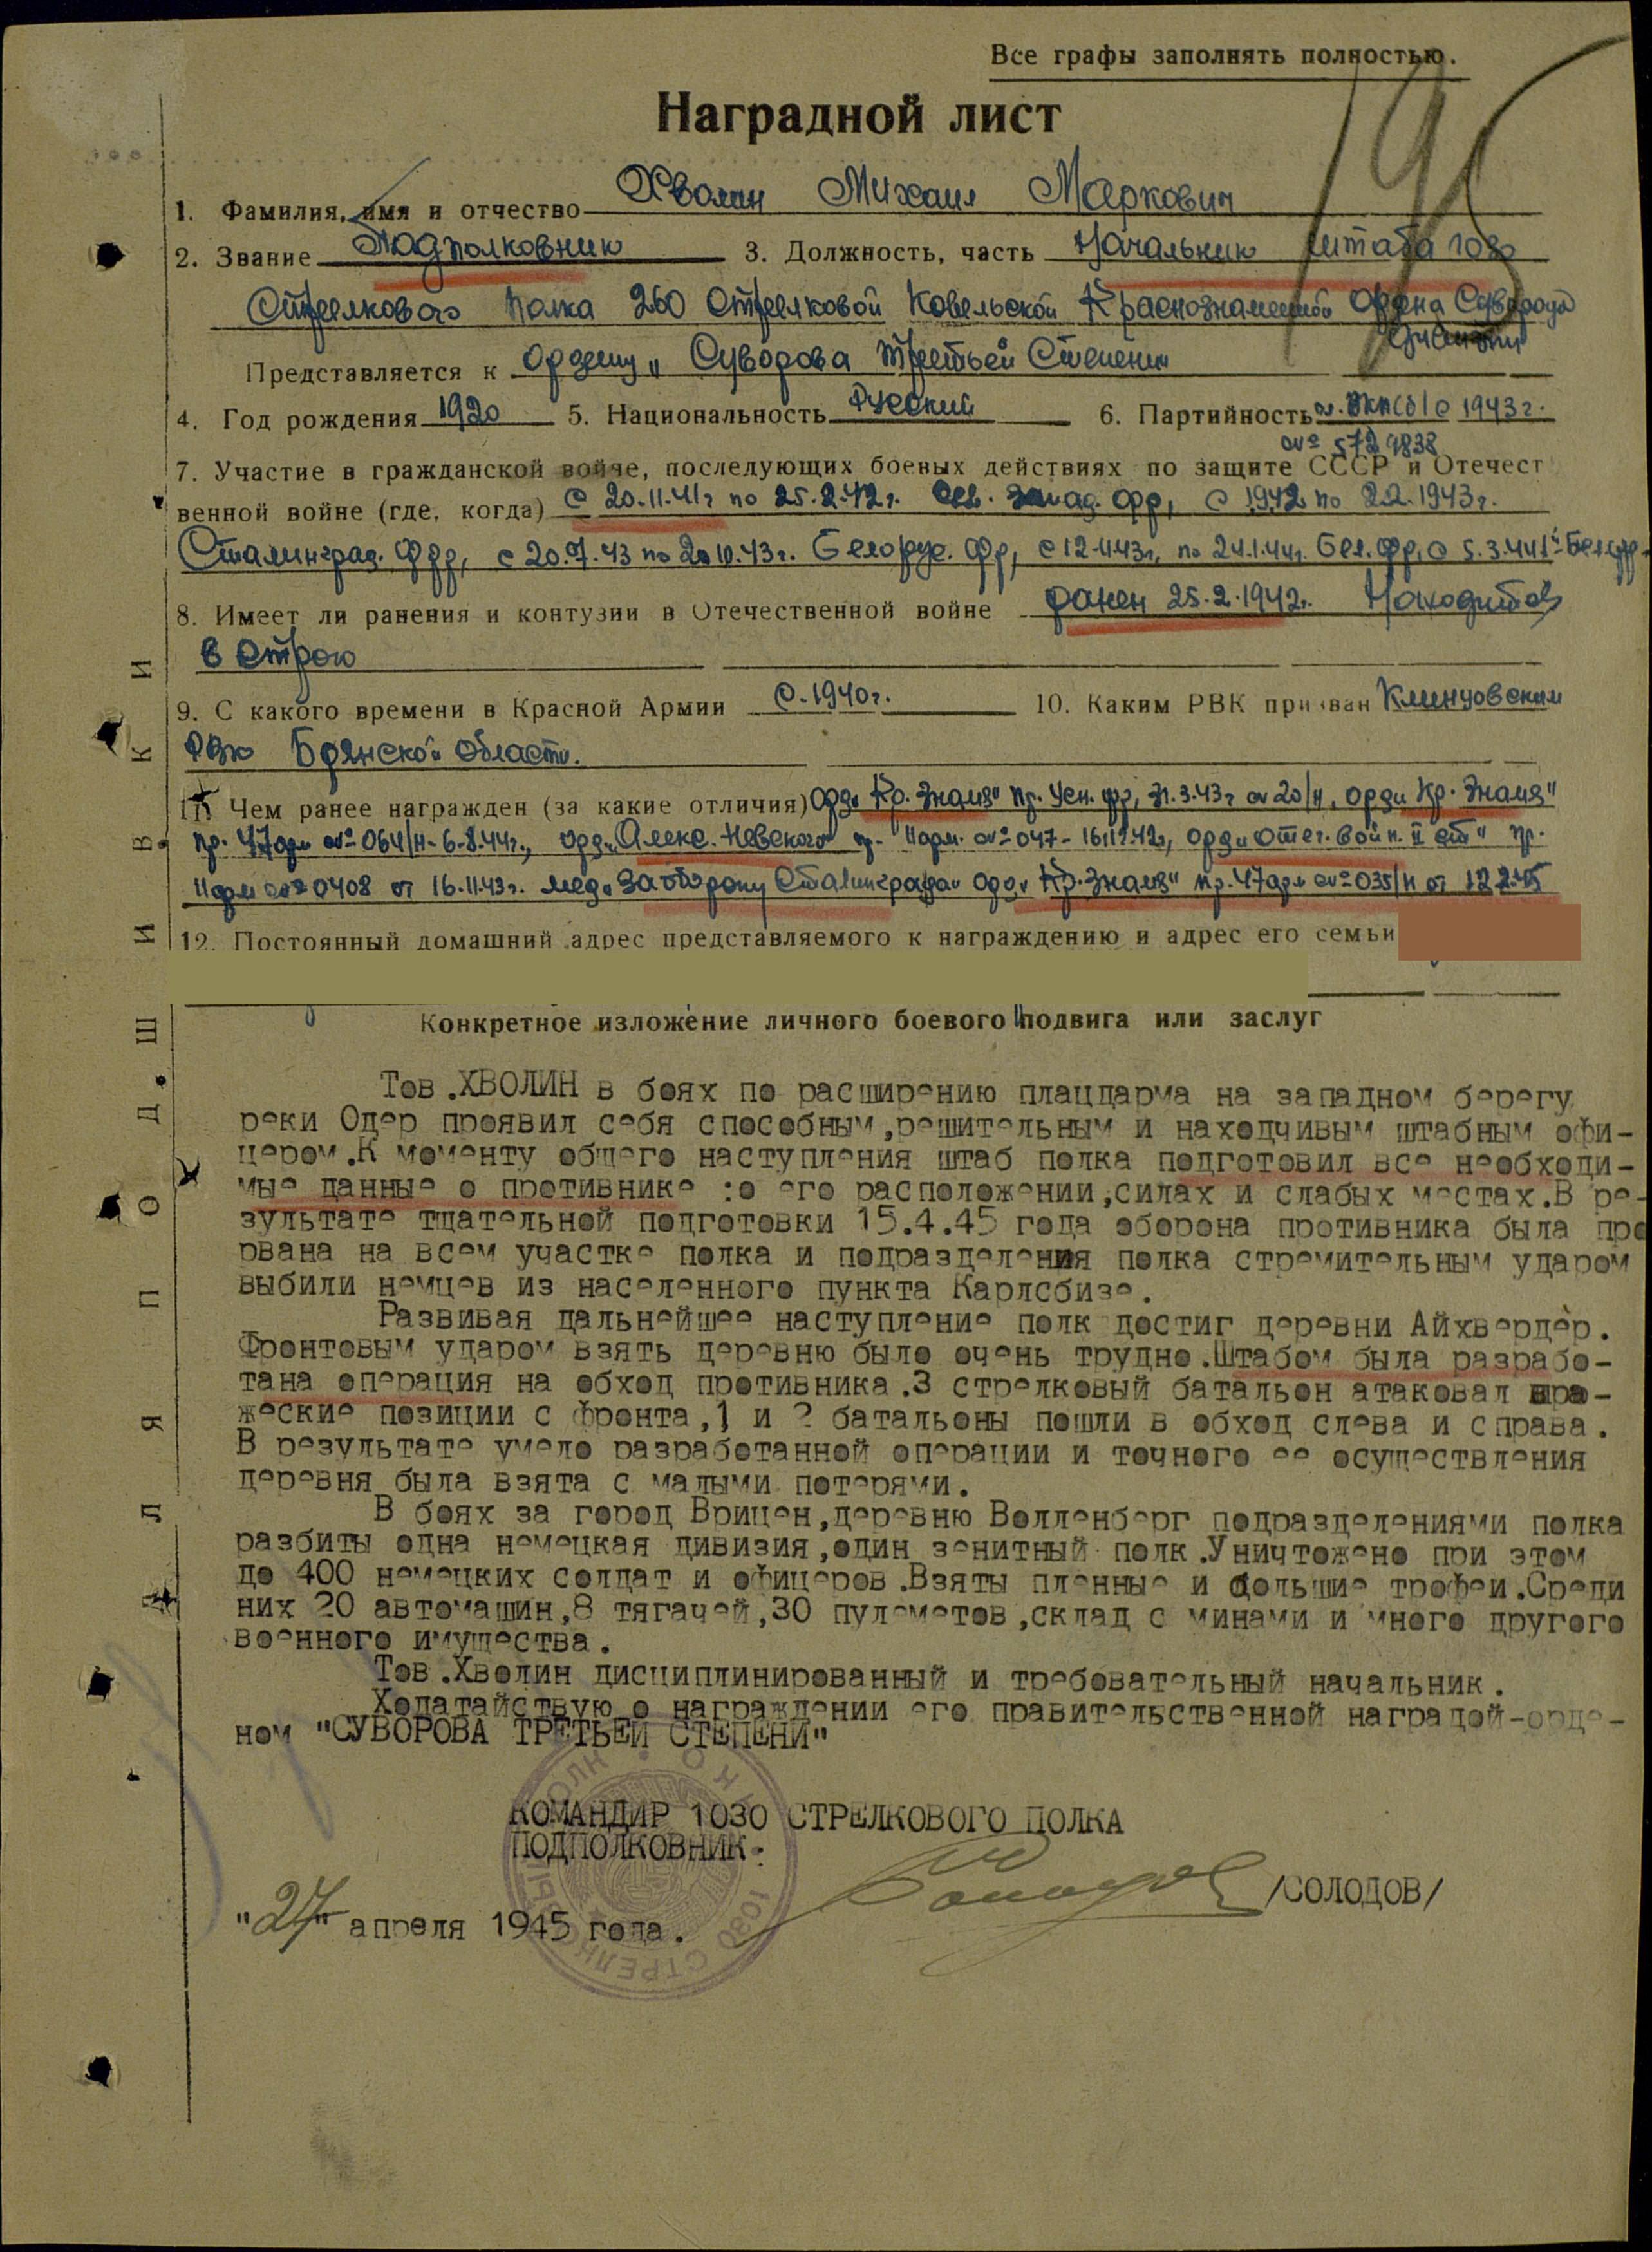 Все графы заполнять полностью.
195
Наградной лист
1. Фамилия, имя и отчество Хволин Михаил Маркович
2. Звание Подполковник 3. Должность, часть Начальник штаба 1030
Стрелкового полка 260 Стрелковой Ковельской Краснознаменной ордена Суворова
дивизии
Представляется к ордену „Суворова третьей Степени"
4. Год рождения 1920 5. Национальность Русский 6. Партийность чл. ВКП(б) с 1943г.
№ 5729838
7. Участие в гражданской войне, последующих боевых действиях по защите СССР и Отечест
венной войне (где, когда) с 20.11.41г по 25.2.42г. Сев. Запад. фр, с 1942 по 2.2.1943г.
Сталинград. фр, с 20.7.43 по 20.10.43г. Белорус. фр, с 12.11.43г, по 24.1.44г. Бел. фр, с 5.3.44 1й Бел фр.
8. Имеет ли ранения и контузии в Отечественной войне ранен 25.2.1942г. Находится
в Строю
9. С какого времени в Красной Армии с 1940г. 10. Каким РВК призван Клинцовским
РВК Брянской области.
11. Чем ранее награжден (за какие отличия) орд. „Кр. Знамя" пр. фр, 31.3.43г № 20/н, орд „Кр. Знамя"
пр. 47арм № 064/н-6-8.44г., орд „Алекс. Невского" пр. 11арм. № 047-, орд „Отеч. Войн. II ст" пр.
11арм № 0408 от 16.11.43г. мед „За оборону Сталинграда" орд „Кр. Знамя" пр. 47арм № 035/н от 12.2.45
12. Постоянный домашний адрес представляемого к награждению и адрес его семьи
Конкретное изложение личного боевого подвига или заслуг
Тов.ХВОЛИН в боях по расширению плацдарма на западном берегу
реки Одер проявил себя способным,решительным и находчивым штабным офи-
цером.К моменту общего наступления штаб полка подготовил все необходи-
мые данные о противнике :о его расположении,силах и слабых местах.В ре-
зультате тщательной подготовки 15.4.45 года оборона противника была про
рвана на всем участке полка и подразделения полка стремительным ударом
выбили немцев из населенного пункта Карлсбизе.
Развивая дальнейшее наступление полк достиг деревни Айхвердер.
Фронтовым ударом взять деревню было очень трудно.Штабом была разрабо-
тана операция на обход противника.3 стрелковый батальон атаковал вра-
жеские позиции с фронта,1 и 2 батальоны пошли в обход слева и справа.
В результате умело разработанной операции и точного ее осуществления
деревня была взята с малыми потерями.
В боях за город Врицен,деревню Волленберг подразделениями полка
разбиты одна немецкая дивизия,один зенитный полк.Уничтожено при этом
до 400 немецких солдат и офицеров.Взяты пленные и большие трофеи.Среди
них 20 автомашин,8 тягачей,30 пулеметов,склад с минами и много другого
военного имущества.
Тов.Хволин дисциплинированный и требовательный начальник.
Ходатайствую о награждении его правительственной наградой-орде-
ном "СУВОРОВА ТРЕТЬЕЙ СТЕПЕНИ"
КОМАНДИР 1030 СТРЕЛКОВОГО ПОЛКА
ПОДПОЛКОВНИК:
/СОЛОДОВ/
"27" апреля 1945 года.
1030 СТРЕЛКОВЫЙ ПОЛК
ДЛЯ ПОДШИВКИ